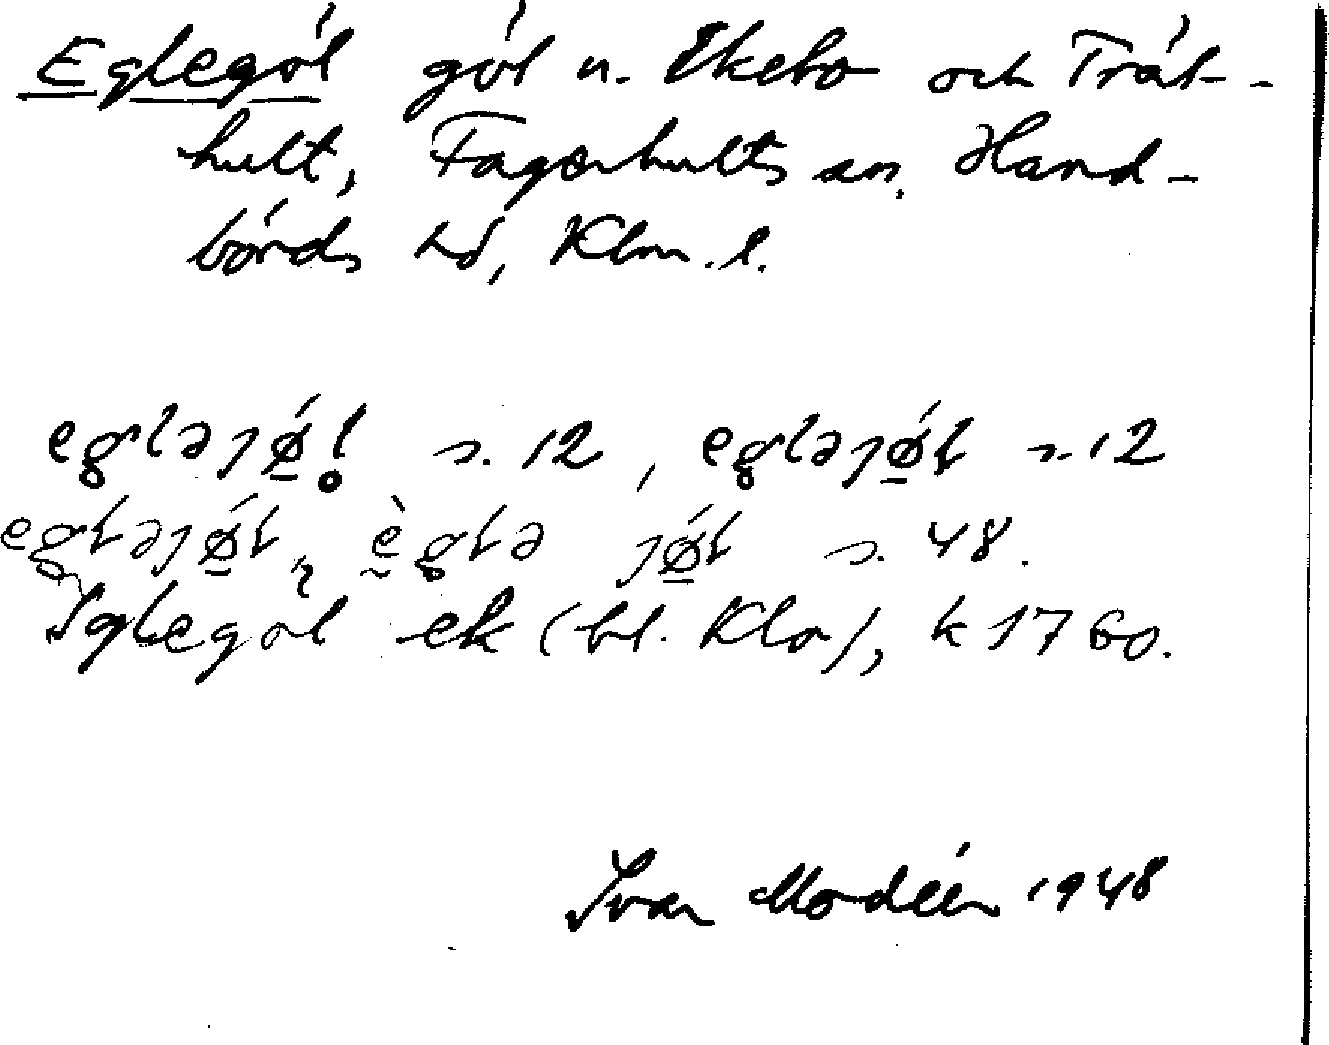 Eglegöl göl n. Ekebo och Trät-
hult, Fagerhults sn. Hand-
börds hd, Klm. l.
egləȷǿ̲l̥ s. 12, egləȷǿ̲l s. 12
egləȷǿ̲l, ḛ̀glə ȷǿ̲l s. 48.
Iglegöl ek (bl. ), k 1760.
Ivar Modéer 1948